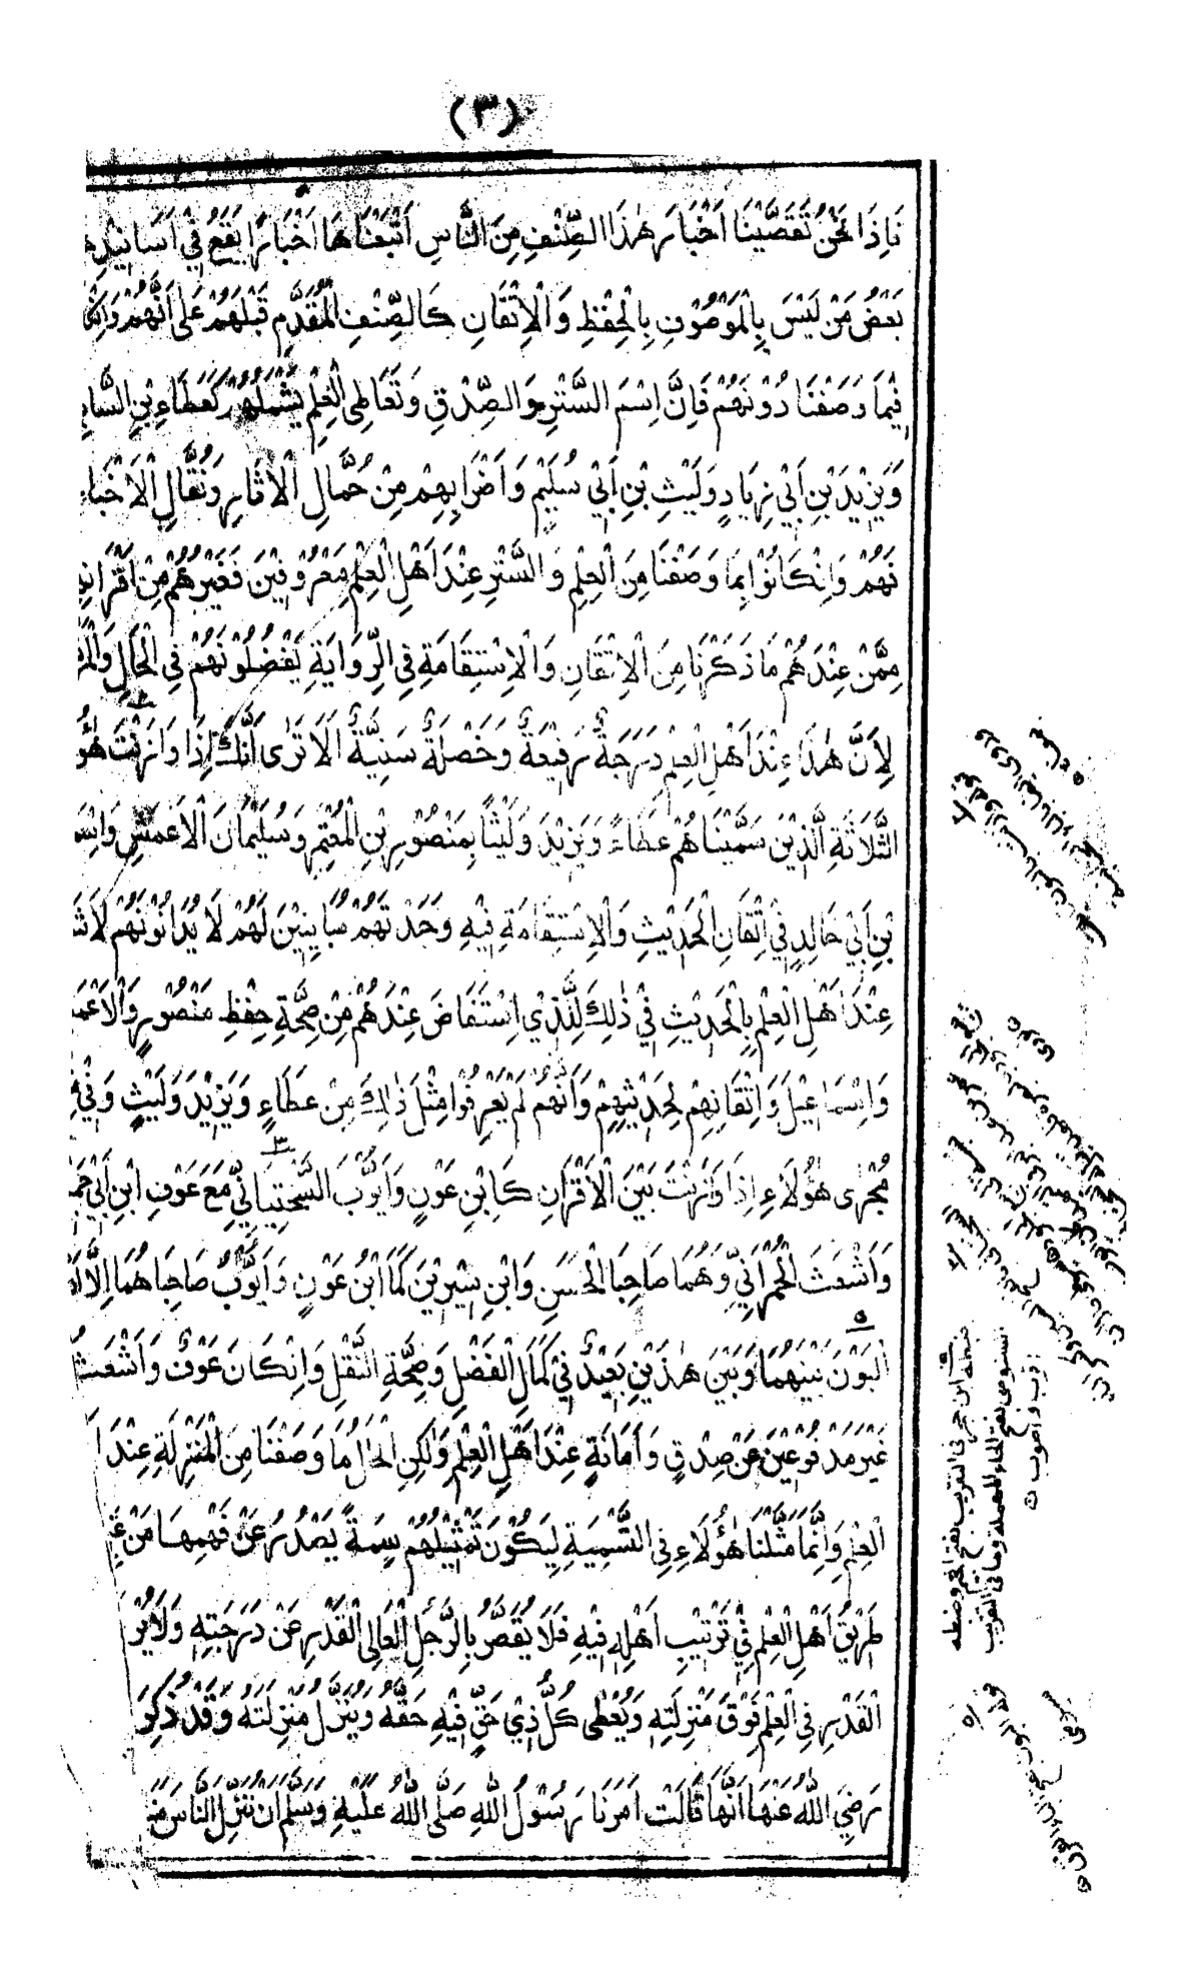 (٣)
فَاِذَا نَحْنُ تَقَصَّيْنَا اَخْبَارَ هٰذَا الصِّنْفِ مِنَ النَّاسِ اَتْبَعْنَاهَا اَخْبَارًا يَقَعُ فِيْ اَسَانِيْدِهَا
بَعْضُ مَنْ لَيْسَ بِالْمَوْصُوْفِ بِالْحِفْظِ وَالْاِتْقَانِ كَالصِّنْفِ الْمُقَدَّمِ قَبْلَهُمْ عَلٰى اَنَّهُمْ وَاِنْ كَا
فِيْمَا وَصَفْنَا دُوْنَهُمْ فَاِنَّ اِسْمَ السَّتْرِ وَالصِّدْقِ وَتَعَاطِي الْعِلْمِ يَشْمَلُهُمْ كَعَطَاءِ بْنِ السَّايِـ
وَيَزِيْدَ بْنِ اَبِيْ زِيَادٍ وَلَيْثِ بْنِ اَبِيْ سُلَيْمٍ وَاَضْرَابِهِمْ مِنْ حُمَّالِ الْاٰثَارِ وَنُقَّالِ الْاَخْبَا
فَهُمْ وَاِنْ كَانُوْا بِمَا وَصَفْنَا مِنَ الْعِلْمِ وَالسَّتْرِ عِنْدَ اَهْلِ الْعِلْمِ مَعْرُوْفِيْنَ فَغَيْرُهُمْ مِنْ اَقْرَانِهِـ
مِمَّنْ عِنْدَهُمْ مَا ذَكَرْنَا مِنَ الْاِتْقَانِ وَالْاِسْتِقَامَةِ فِي الرِّوَايَةِ يَفْضُلُوْنَهُمْ فِي الْحَالِ وَالْمَر
لِاَنَّ هٰذَا عِنْدَ اَهْلِ الْعِلْمِ دَرَجَةٌ رَفِيْعَةٌ وَخَصْلَةٌ سَنِيَّةٌ اَلَا تَرٰى اَنَّكَ اِذَا وَازَنْتَ هٰؤُ
الثَّلَاثَةِ الَّذِيْنَ سَمَّيْنَاهُمْ عَطَاءً وَيَزِيْدَ وَلَيْثًا بِمَنْصُوْرِ بْنِ الْمُعْتَمِرِ وَسُلَيْمَانَ الْاَعْمَشِ وَاِسْمـ
بْنِ اَبِيْ خَالِدٍ فِيْ اِتْقَانِ الْحَدِيْثِ وَالْاِسْتِقَامَةِ فِيْهِ وَجَدْتَهُمْ مُبَايِنِيْنَ لَهُمْ لَا يُدَانُوْنَهُمْ لَا شَـ
عِنْدَ اَهْلِ الْعِلْمِ بِالْحَدِيْثِ فِيْ ذٰلِكَ لِلَّذِيْ اِسْتَفَاضَ عِنْدَهُمْ مِنْ صِحَّةِ حِفْظِ مَنْصُوْرٍ وَالْاَعْمَـ
وَاِسْمَاعِيْلَ وَاِتْقَانِهِمْ لِحَدِيْثِهِمْ وَاَنَّهُمْ لَمْ يَعْرِفُوْا مِثْلَ ذٰلِكَ مِنْ عَطَاءٍ وَيَزِيْدَ وَلَيْثٍ وَفِيْ
مُجْرٰى هٰؤُلَاءِ اِذَا وَازَنْتَ بَيْنَ الْاَقْرَانِ كَابْنِ عَوْنٍ وَاَيُّوْبَ السَّخْتِيَانِيِّ مَعَ عَوْفِ ابْنِ اَبِيْ جَمِـ
وَاَشْعَثَ الْحُمْرَانِيِّ وَهُمَا صَاحِبَا الْحَسَنِ وَابْنِ سِيْرِيْنَ كَمَا ابْنُ عَوْنٍ وَاَيُّوْبُ صَاحِبَاهُمَا اِلَّا اَ
الْبَوْنَ بَيْنَهُمَا وَبَيْنَ هٰذَيْنِ بَعِيْدٌ فِيْ كَمَالِ الْفَضْلِ وَصِحَّةِ النَّقْلِ وَاِنْ كَانَ عَوْفٌ وَاَشْعَثُ
غَيْرَ مَدْفُوْعَيْنِ عَنْ صِدْقٍ وَاَمَانَةٍ عِنْدَ اَهْلِ الْعِلْمِ وَلٰكِنِ الْحَالُ مَا وَصَفْنَا مِنَ الْمَنْزِلَةِ عِنْدَ اَ
الْعِلْمِ وَاِنَّمَا مَثَّلْنَا هٰؤُلَاءِ فِي التَّسْمِيَةِ لِيَكُوْنَ تَمْثِيْلُهُمْ سِمَةً يَصْدُرُ عَنْ فَهْمِهَا مَنْ غَ
طَرِيْقُ اَهْلِ الْعِلْمِ فِيْ تَرْتِيْبِ اَهْلِهٖ فِيْهِ فَلَا يُقَصَّرُ بِالرَّجُلِ الْعَالِي الْقَدْرِ عَنْ دَرَجَتِهٖ وَلَا يُرْ
الْقَدْرِ فِي الْعِلْمِ فَوْقَ مَنْزِلَتِهٖ وَيُعْطٰى كُلُّ ذِيْ حَقٍّ فِيْهِ حَقَّهُ وَيُنَزَّلُ مَنْزِلَتَهُ وَقَدْ ذُكِرَ
رَضِيَ اللّٰهُ عَنْهَا اَنَّهَا قَالَتْ اَمَرَنَا رَسُوْلُ اللّٰهِ صَلَّى اللّٰهُ عَلَيْهِ وَسَلَّمَ اَنْ نُنَزِّلَ النَّاسَ مَنَـ
ضبطه ابن حجر فى التقريب بفتح الجيم وضبطه
السنوسى بفتح الحاء المهملة وما فى التقريب